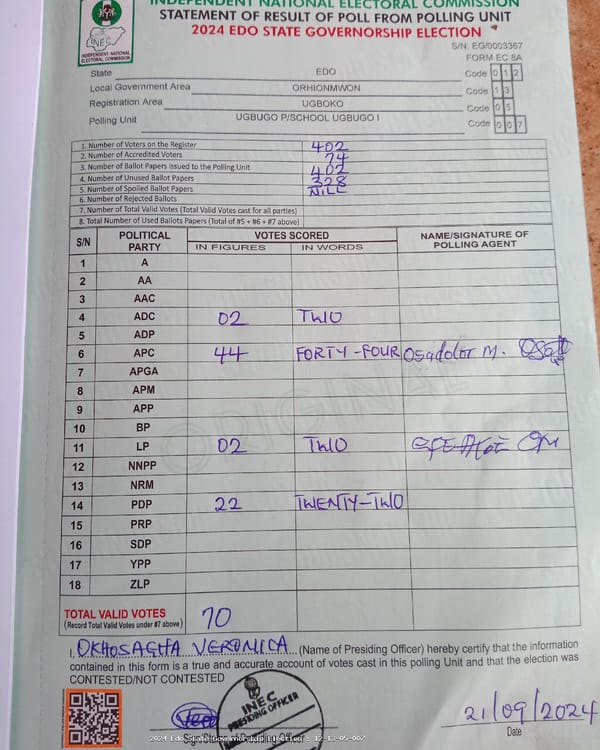 INDEPENDENT NATIONAL ELECTORAL COMMISSION
STATEMENT OF RESULT OF POLL FROM POLLING UNIT
2024 EDO STATE GOVERNORSHIP ELECTION
INEC
INDEPENDENT NATIONAL ELECTORAL COMMISSION
S/N. EG/0003367
FORM EC 8A
State EDO Code 0 1 2
Local Government Area ORHIONMWON Code 1 3
Registration Area UGBOKO Code 0 5
Polling Unit UGBUGO P/SCHOOL UGBUGO I Code 0 0 7
1. Number of Voters on the Register 402
2. Number of Accredited Voters 74
3. Number of Ballot Papers Issued to the Polling Unit 402
4. Number of Unused Ballot Papers 328
5. Number of Spoiled Ballot Papers NILL
6. Number of Rejected Ballots
7. Number of Total Valid Votes (Total Valid Votes cast for all parties)
8. Total Number of Used Ballots Papers (Total of #5 + #6 + #7 above)
S/N POLITICAL PARTY VOTES SCORED NAME/SIGNATURE OF POLLING AGENT
IN FIGURES IN WORDS
1 A
2 AA
3 AAC
4 ADC 02 TWO
5 ADP
6 APC 44 FORTY-FOUR Osadolor M.
7 APGA
8 APM
9 APP
10 BP
11 LP 02 TWO
12 NNPP
13 NRM
14 PDP 22 TWENTY-TWO
15 PRP
16 SDP
17 YPP
18 ZLP
ORIGINAL
TOTAL VALID VOTES 70
(Record Total Valid Votes under #7 above)
I, OKHOSAGHA VERONICA (Name of Presiding Officer) hereby certify that the information
contained in this form is a true and accurate account of votes cast in this polling Unit and that the election was
CONTESTED/NOT CONTESTED
INEC
PRESIDING OFFICER
21/09/2024
Date
2024 Edo State Governorship Election - 12-13-05-007